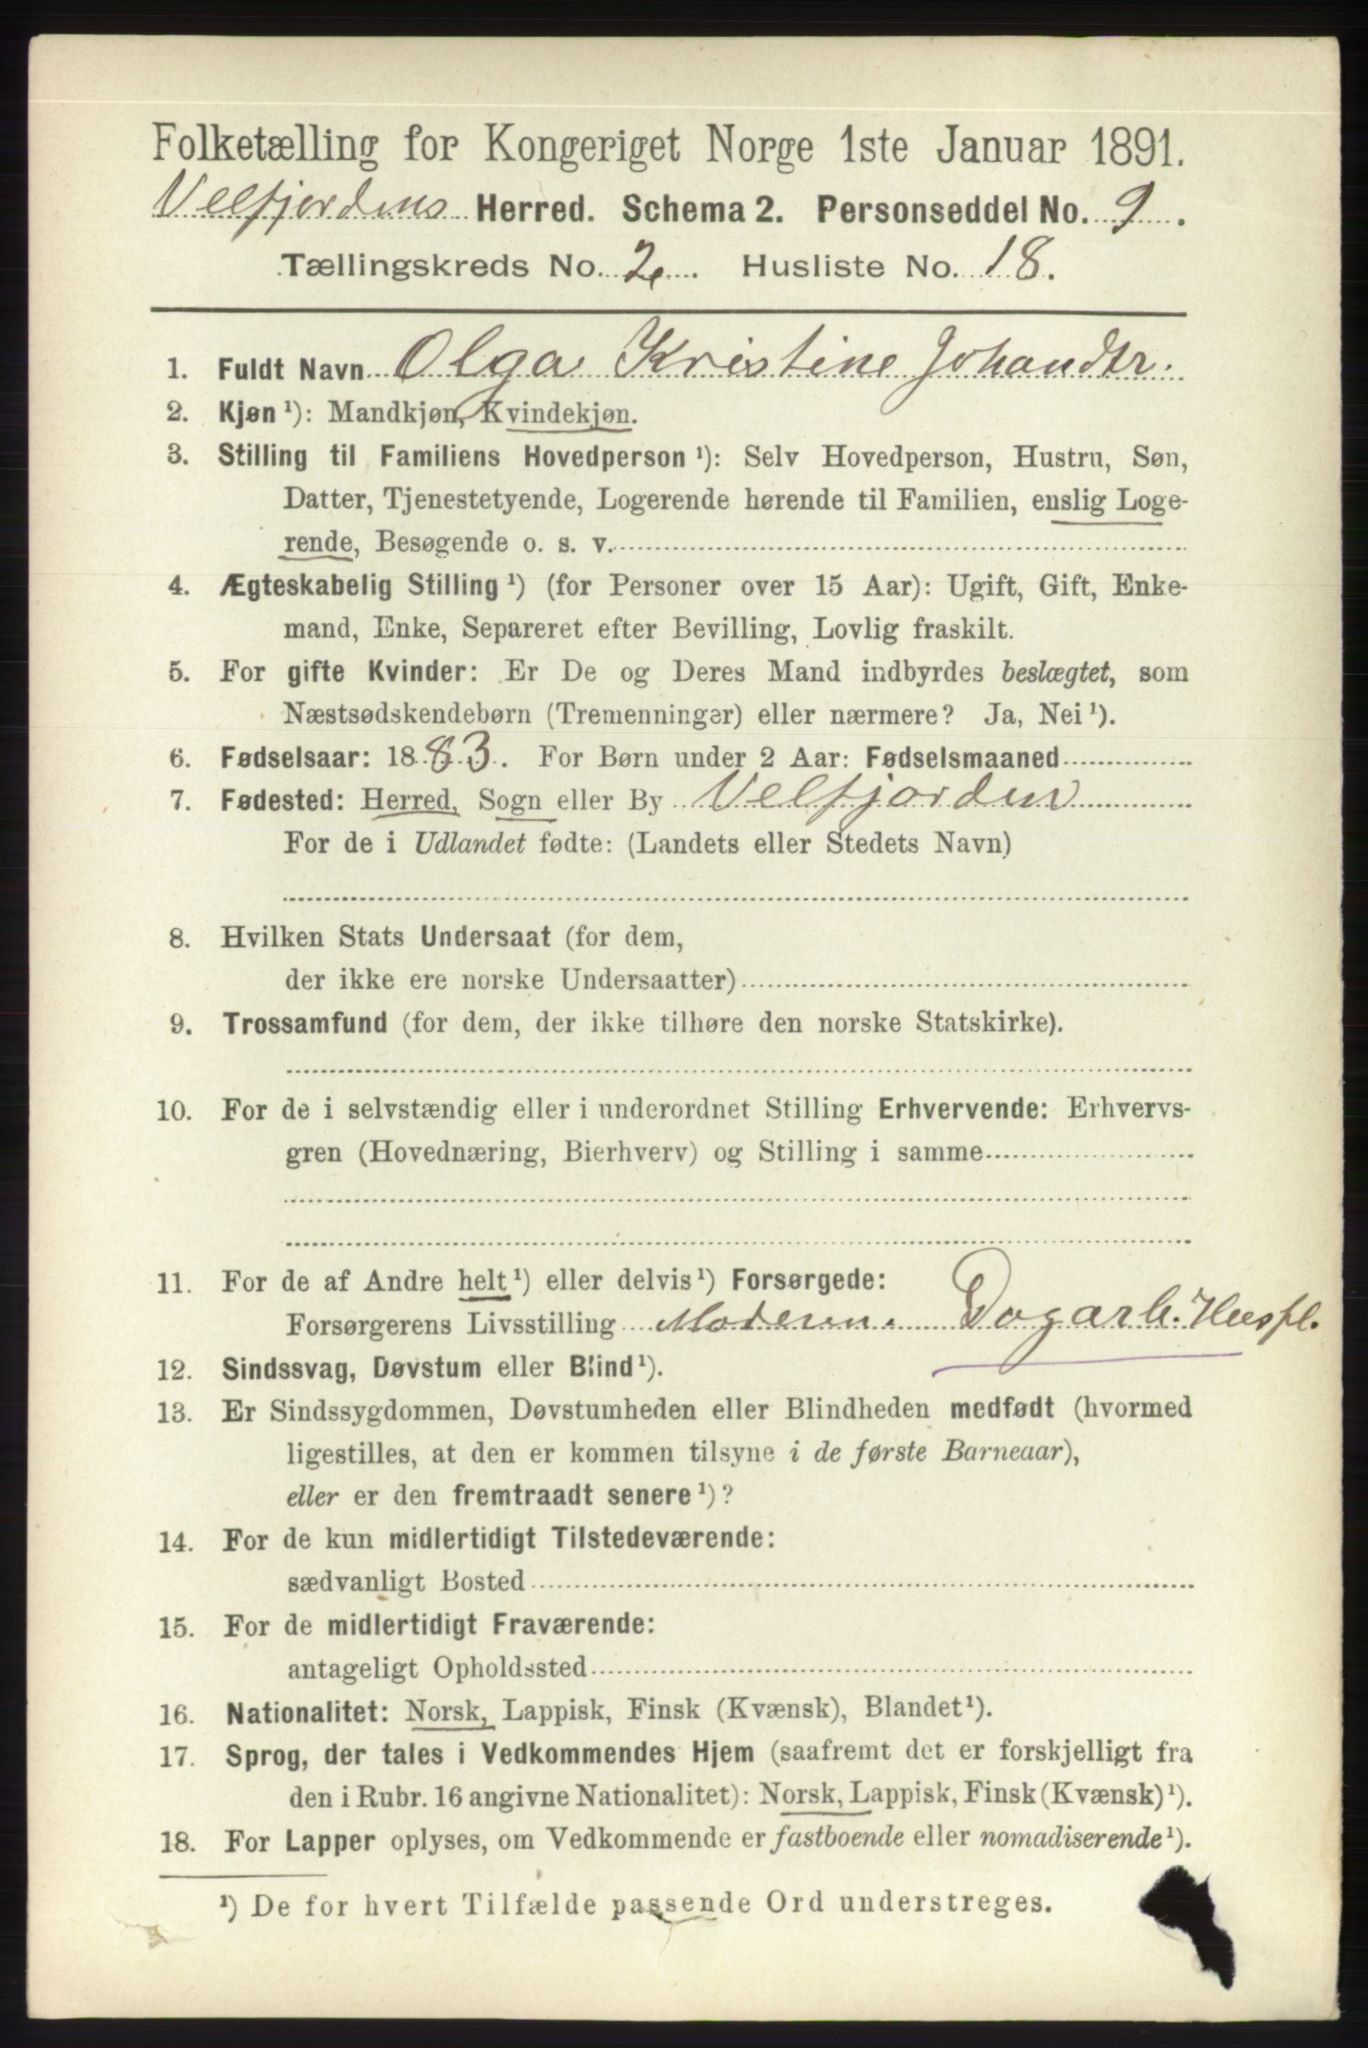 Folketælling for Kongeriget Norge 1ste Januar 1891.
Velfjordens Herred. Schema 2. Personseddel No. 9.
Tællingskreds No. 2. Husliste No. 18.
1. Fuldt Navn Olga Kristine Johandtr.
2. Kjøn¹): Mandkjøn, Kvindekjøn.
3. Stilling til Familiens Hovedperson¹): Selv Hovedperson, Hustru, Søn,
Datter, Tjenestetyende, Logerende hørende til Familien, enslig Loge-
rende, Besøgende o. s. v.
4. Ægteskabelig Stilling¹) (for Personer over 15 Aar): Ugift, Gift, Enke-
mand, Enke, Separeret efter Bevilling, Lovlig fraskilt.
5. For gifte Kvinder: Er De og Deres Mand indbyrdes beslægtet, som
Næstsødskendebørn (Tremenninger) eller nærmere? Ja, Nei¹).
6. Fødselsaar: 1883. For Børn under 2 Aar: Fødselsmaaned
7. Fødested: Herred, Sogn eller By Velfjorden
For de i Udlandet fødte: (Landets eller Stedets Navn)
8. Hvilken Stats Undersaat (for dem,
der ikke ere norske Undersaatter)
9. Trossamfund (for dem, der ikke tilhøre den norske Statskirke).
10. For de i selvstændig eller i underordnet Stilling Erhvervende: Erhvervs-
gren (Hovednæring, Bierhverv) og Stilling i samme
11. For de af Andre helt¹) eller delvis¹) Forsørgede:
Forsørgerens Livsstilling Moderen. Dagarb. Huspl.
12. Sindssvag, Døvstum eller Blind¹).
13. Er Sindssygdommen, Døvstumheden eller Blindheden medfødt (hvormed
ligestilles, at den er kommen tilsyne i de første Barneaar),
eller er den fremtraadt senere¹)?
14. For de kun midlertidigt Tilstedeværende:
sædvanligt Bosted
15. For de midlertidigt Fraværende:
antageligt Opholdssted
16. Nationalitet: Norsk, Lappisk, Finsk (Kvænsk), Blandet¹).
17. Sprog, der tales i Vedkommendes Hjem (saafremt det er forskjelligt fra
den i Rubr. 16 angivne Nationalitet): Norsk, Lappisk, Finsk (Kvænsk)¹).
18. For Lapper oplyses, om Vedkommende er fastboende eller nomadiserende¹).
¹) De for hvert Tilfælde passende Ord understreges.